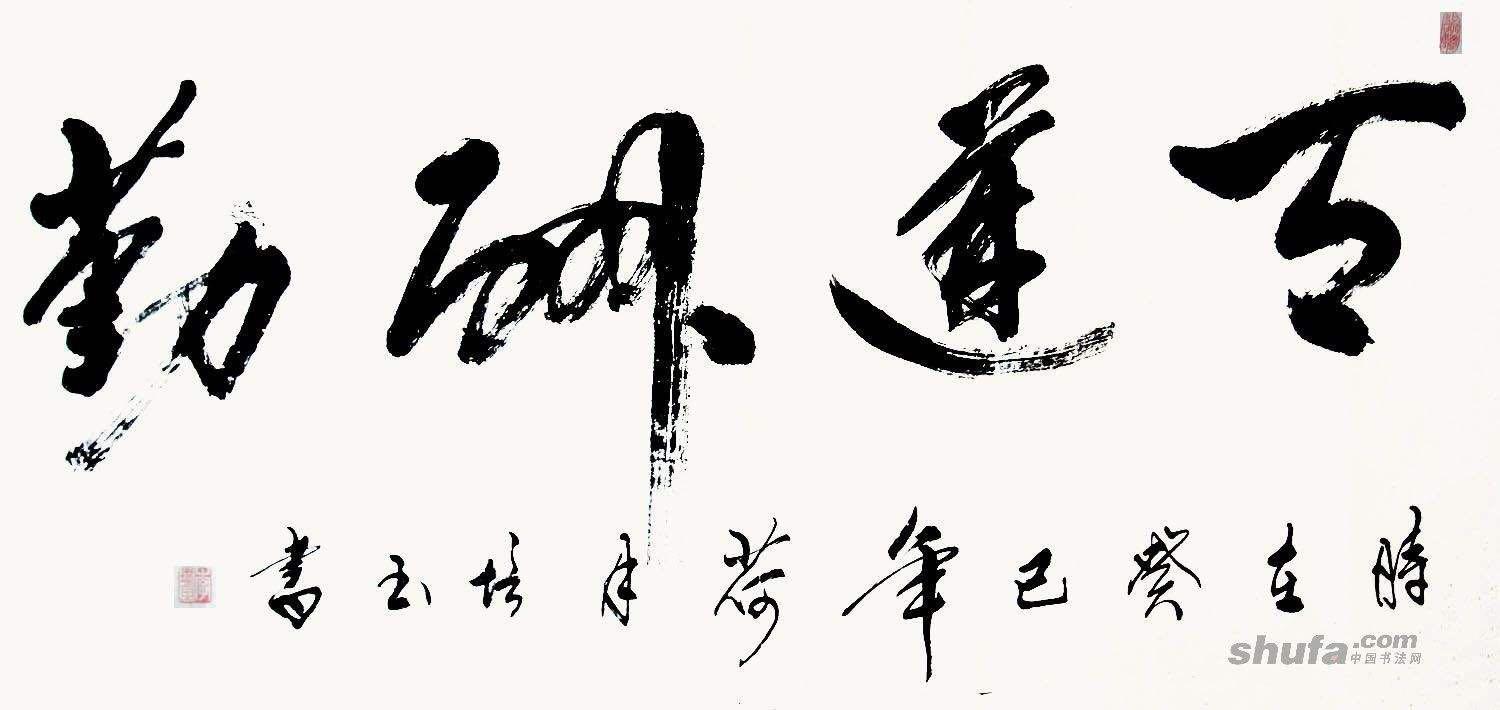 天道酬勤
時在癸巳年荷月培玉書
shufa.com
中国书法网